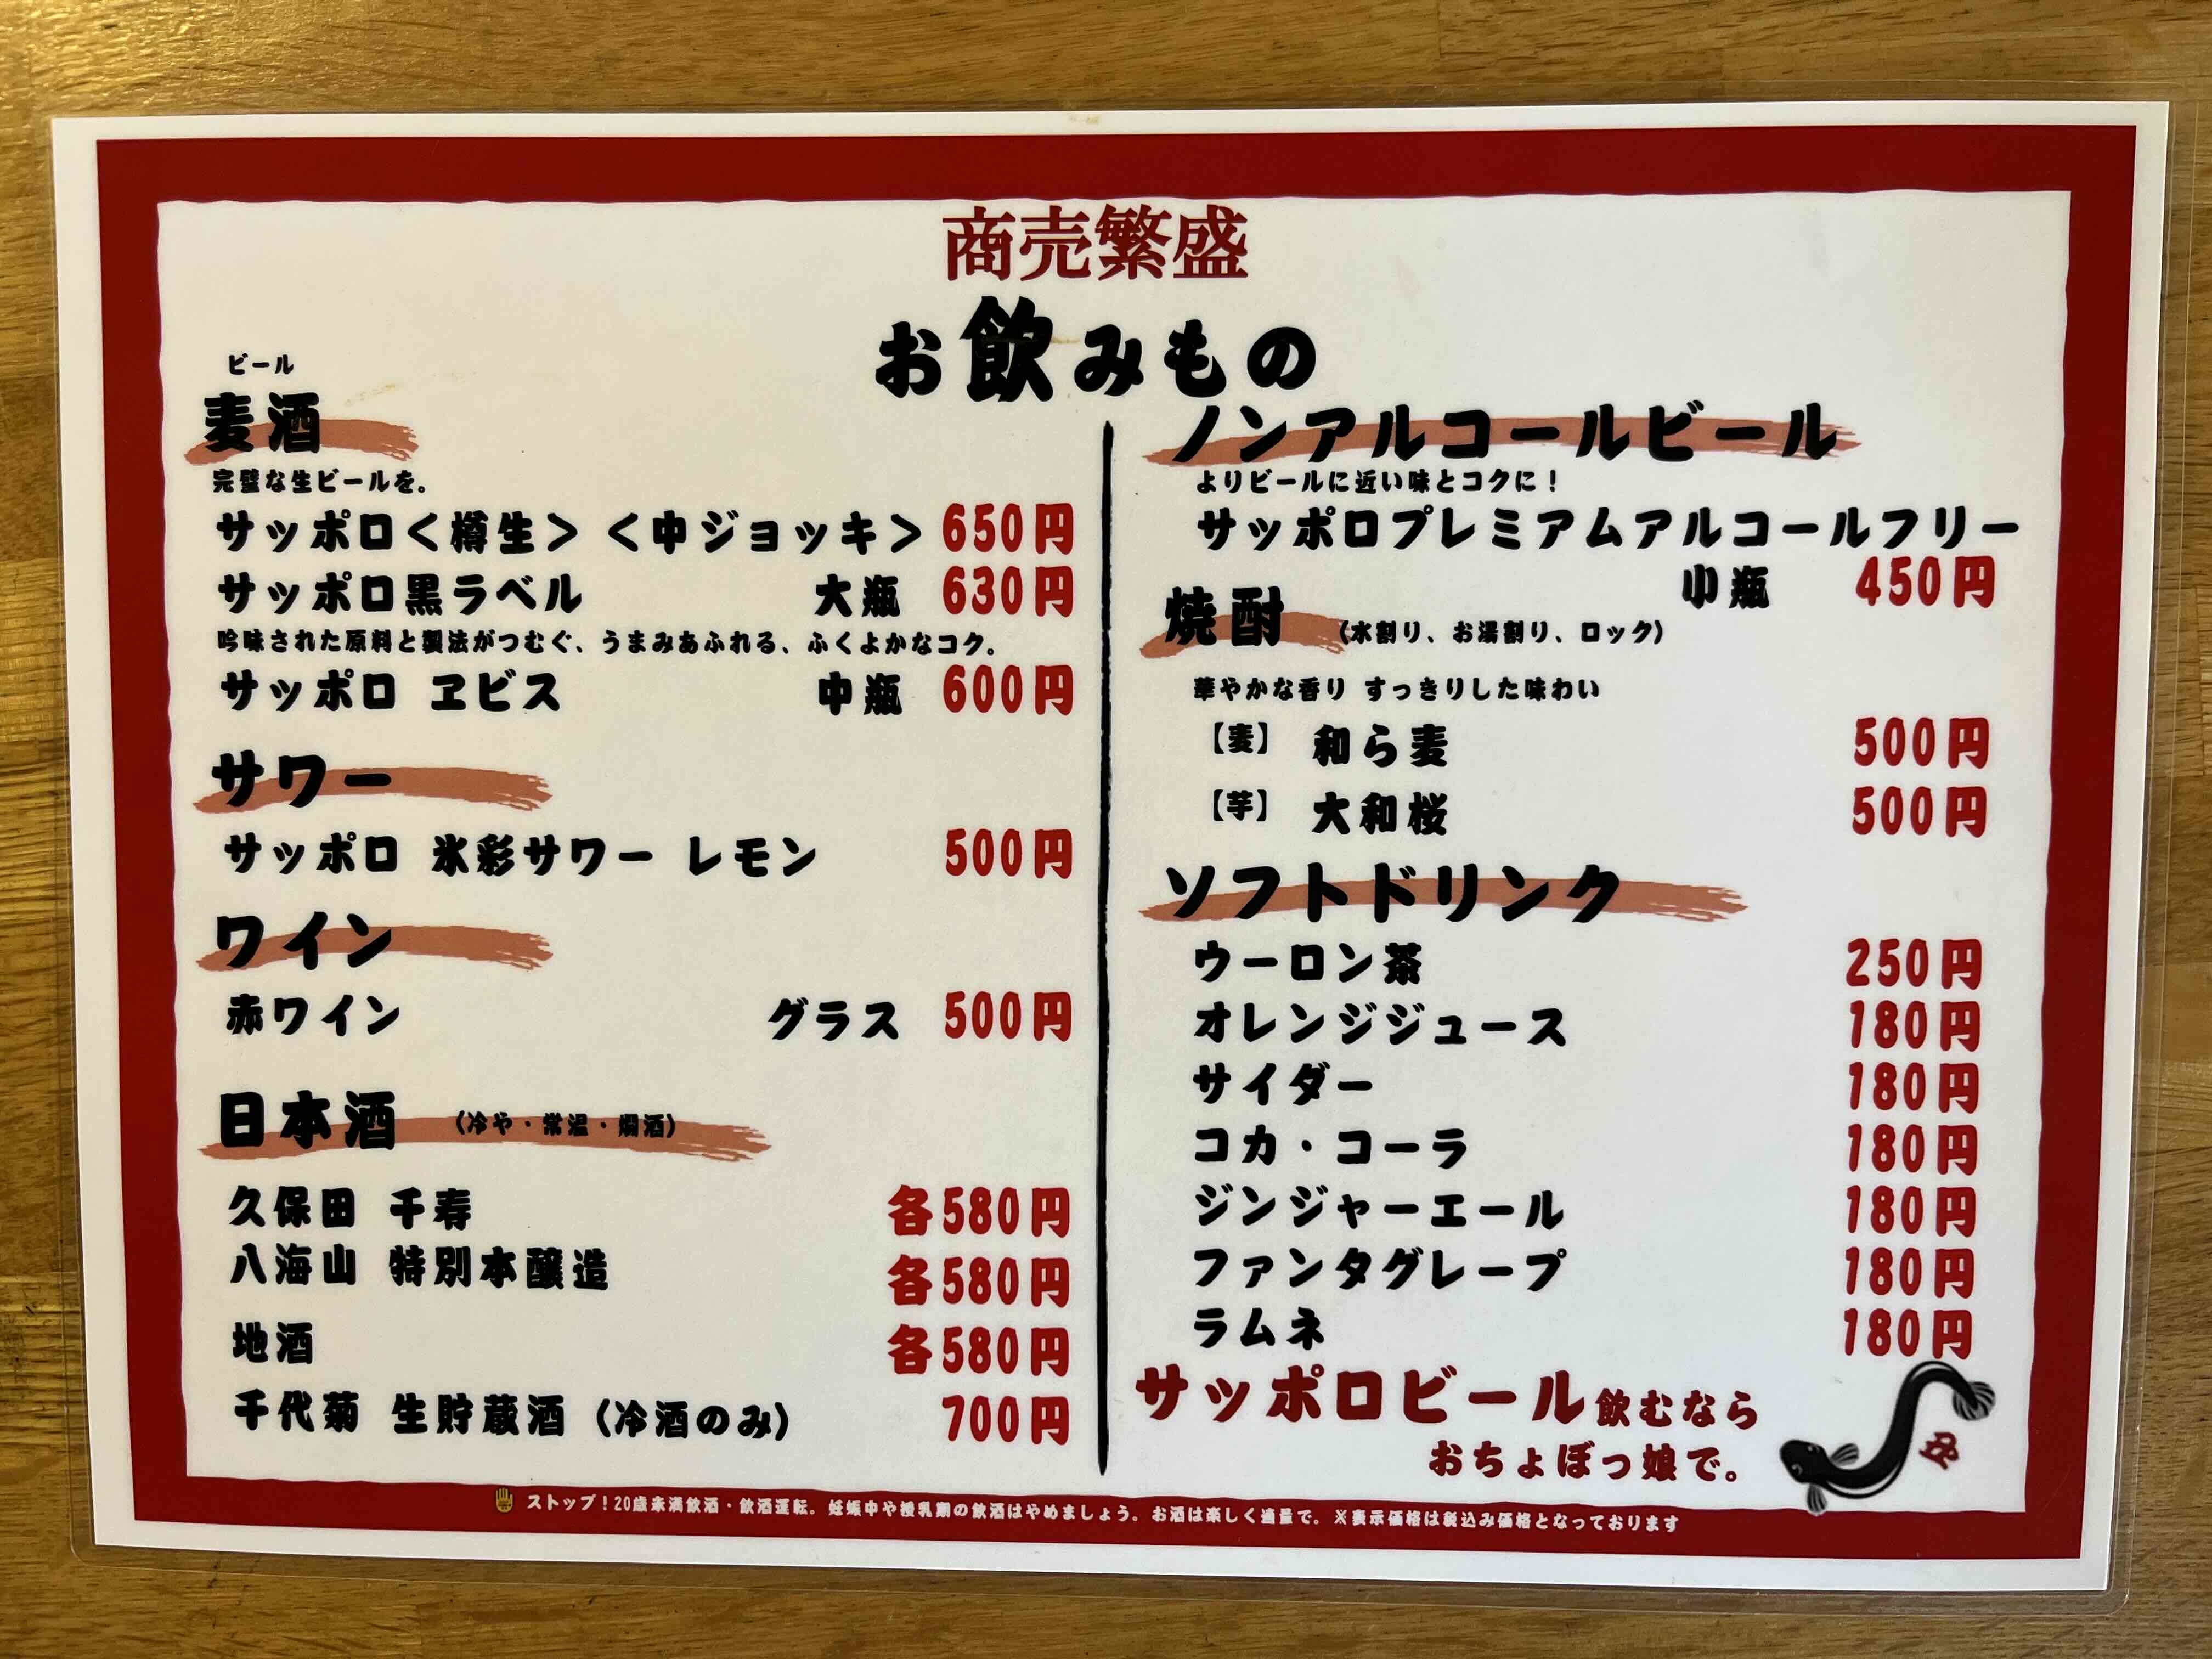 商売繁盛
お飲みもの
ビール
麦酒
完璧な生ビールを。
サッポロ<樽生> <中ジョッキ> 650円
サッポロ黒ラベル 大瓶 630円
吟味された原料と製法がつむぐ、うまみあふれる、ふくよかなコク。
サッポロ ヱビス 中瓶 600円
サワー
サッポロ 氷彩サワー レモン 500円
ワイン
赤ワイン グラス 500円
日本酒 (冷や・常温・燗酒)
久保田 千寿 各580円
八海山 特別本醸造 各580円
地酒 各580円
千代菊 生貯蔵酒 (冷酒のみ) 700円
ノンアルコールビール
よりビールに近い味とコクに!
サッポロプレミアムアルコールフリー
小瓶 450円
焼酎 (水割り、お湯割り、ロック)
華やかな香り すっきりした味わい
【麦】 和ら麦 500円
【芋】 大和桜 500円
ソフトドリンク
ウーロン茶 250円
オレンジジュース 180円
サイダー 180円
コカ・コーラ 180円
ジンジャーエール 180円
ファンタグレープ 180円
ラムネ 180円
サッポロビール飲むなら
おちょぼっ娘で。
丑
ストップ!20歳未満飲酒・飲酒運転。妊娠中や授乳期の飲酒はやめましょう。お酒は楽しく適量で。※表示価格は税込み価格となっております